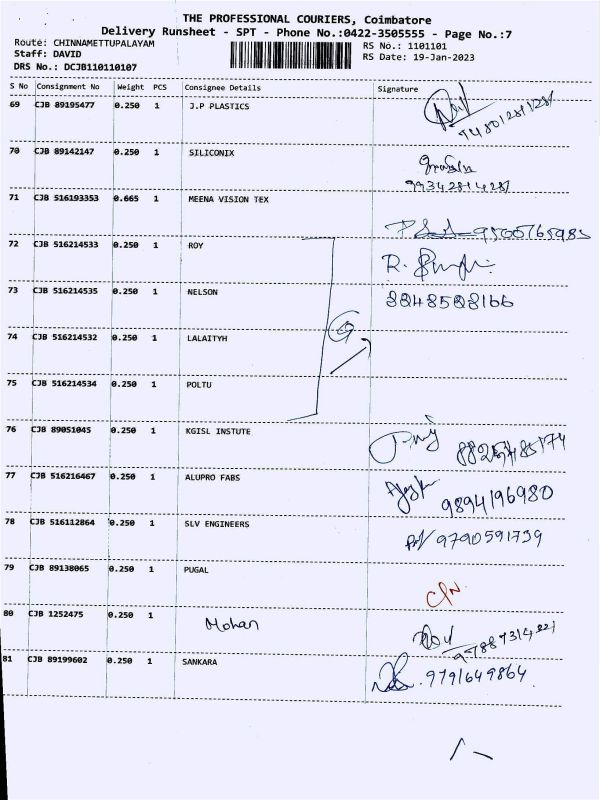 THE PROFESSIONAL COURIERS, Coimbatore
Delivery Runsheet - SPT - Phone No.:0422-3505555 - Page No.:7
Route: CHINNAMETTUPALAYAM
RS No.: 1101101
Staff: DAVID
RS Date: 19-Jan-2023
DRS No.: DCJB110110107
S No Consignment No Weight PCS Consignee Details Signature
69 CJB 89195477 0.250 1 J.P PLASTICS
70 CJB 89142147 0.250 1 SILICONIX
9934281428
71 CJB 516193353 0.665 1 MEENA VISION TEX
9500765985
72 CJB 516214533 0.250 1 ROY
73 CJB 516214535 0.250 1 NELSON
74 CJB 516214532 0.250 1 LALAITYH
75 CJB 516214534 0.250 1 POLTU
76 CJB 89051045 0.250 1 KGISL INSTUTE
77 CJB 516216467 0.250 1 ALUPRO FABS
9894196980
78 CJB 516112864 0.250 1 SLV ENGINEERS
9790591739
79 CJB 89138065 0.250 1 PUGAL
80 CJB 1252475 0.250 1 Mohan
81 CJB 89199602 0.250 1 SANKARA
9791649864